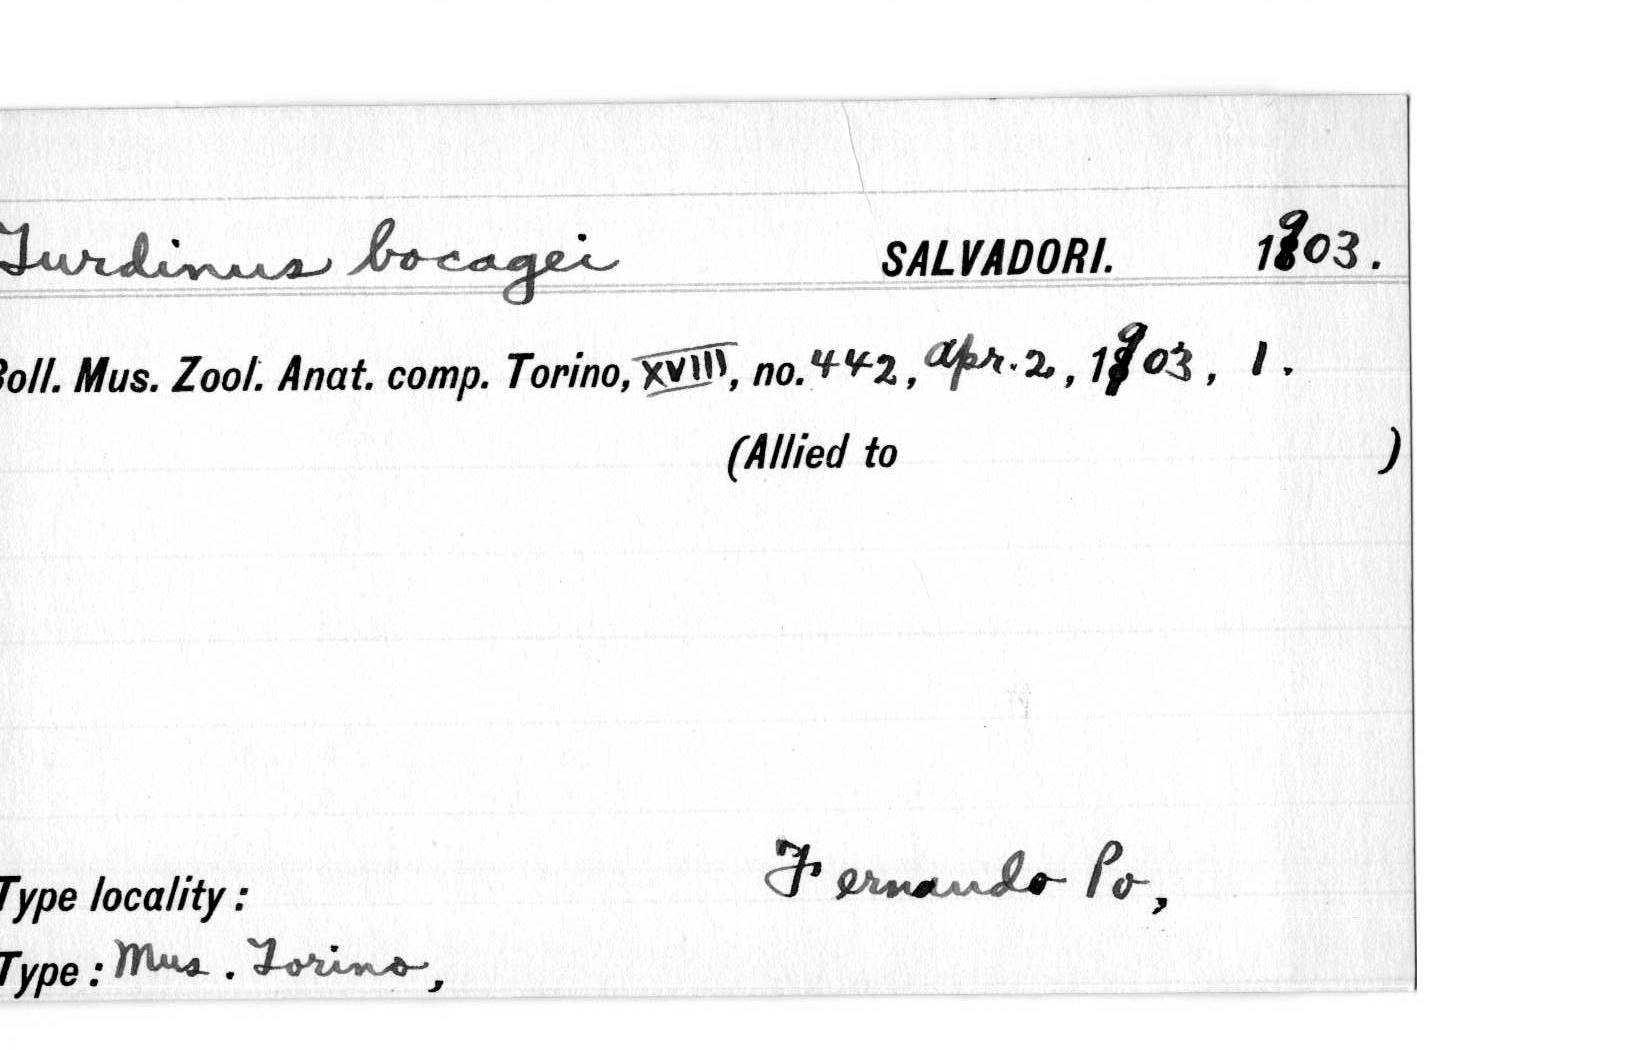 Turdinus bocagei SALVADORI. 1903.
Boll. Mus. Zool. Anat. comp. Torino, XVIII, no. 442, Apr. 2, 1903, 1.
(Allied to )
Type locality: Fernando Po,
Type: Mus. Torino,